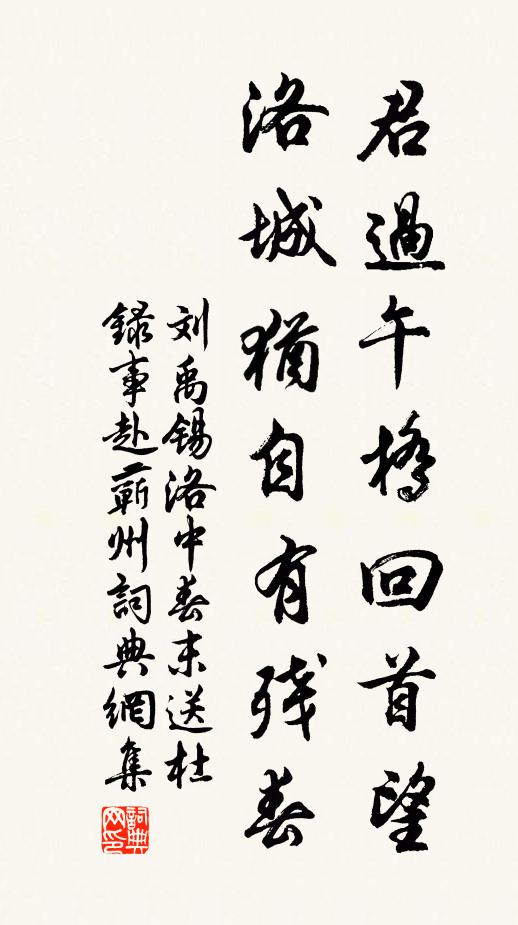 君過午橋回首望
洛城猶自有残春
刘禹锡洛中春末送杜
録事赴蘄州詞典網集
詞典网印